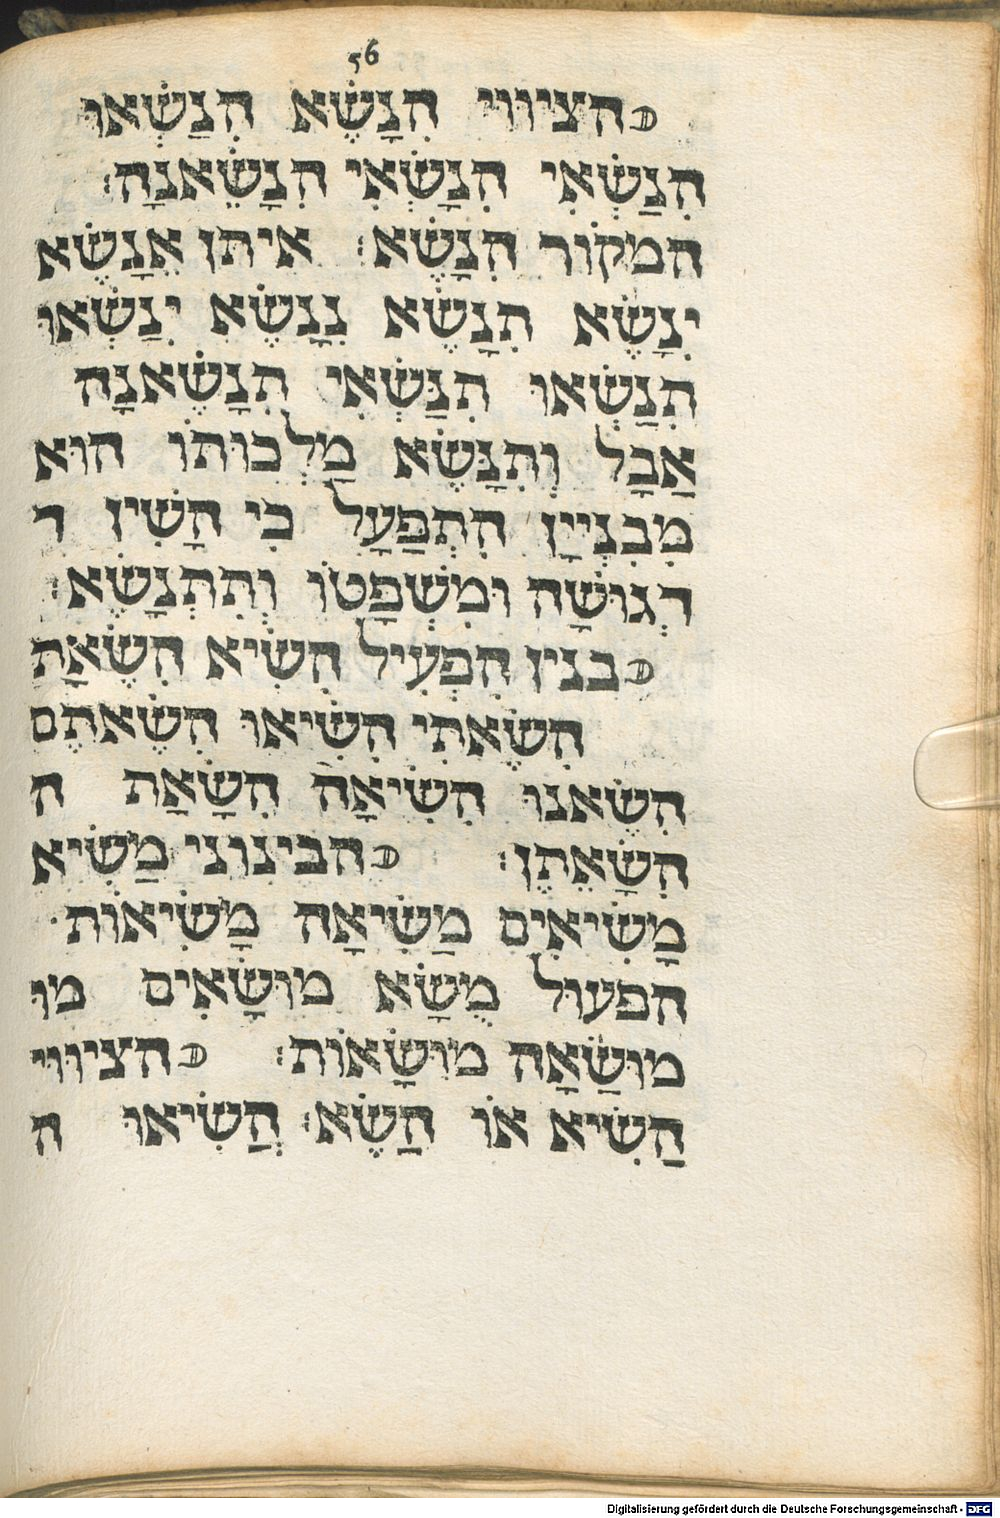 56
הציווי הִנָשֵׂא הִנַשְׂאוּ
הִנַשְׂאִי הִנָשְׂאִי הִנָשֶׂאנָה׃
המקור הִנָשֵׂא׃ איתן אֶנָשֵׂא
יִנָשֵׂא תִנָשֵׂא נִנָשֵׂא יִנַשְׂאוּ
תִנַשְׂאוּ תִנַשְׂאִי תִנָשֶׂאנָה
אֲבָל וְתִנַשֵׂא מַלְכוּתוֹ הוא
מִבִנְיַין הִתְפַּעֵל כִי הַשִׁין ד
דְגוּשָׁה וּמִשְׁפָּטוֹ וְתִתְנַשֵׂא׃
בנין הִפְעִיל הִשִׂיא הִשֵׂאתָ
הִשֵׂאתִי הִשִׂיאוּ הִשֵׂאתֶם
הִשֵׂאנוּ הִשִׂיאָה הִשֵׂאת ה
הִשֵׂאתֶן׃ הבינוני מַשִׂיא
מַשִׂיאִים מַשִׂיאָה מַשִׂיאוֹת׃
הפעול מֻשָׂא מוּשָׂאִים מוּ
מוּשָׂאָה מוּשָׂאוֹת׃ הציווי
הַשִׂיא אוֹ הַשֵׂא׃ הַשִׂיאוּ ה
Digitalisierung gefördert durch die Deutsche Forschungsgemeinschaft - DFG